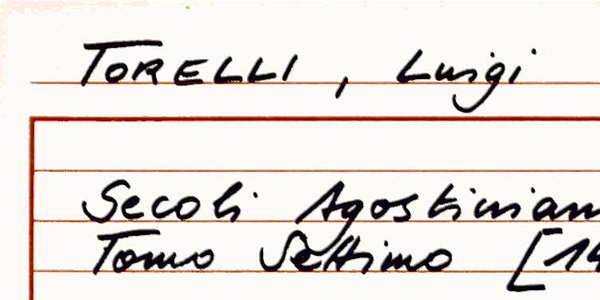 TORELLI, Luigi
Secoli Agostinian
Tomo Settimo [14